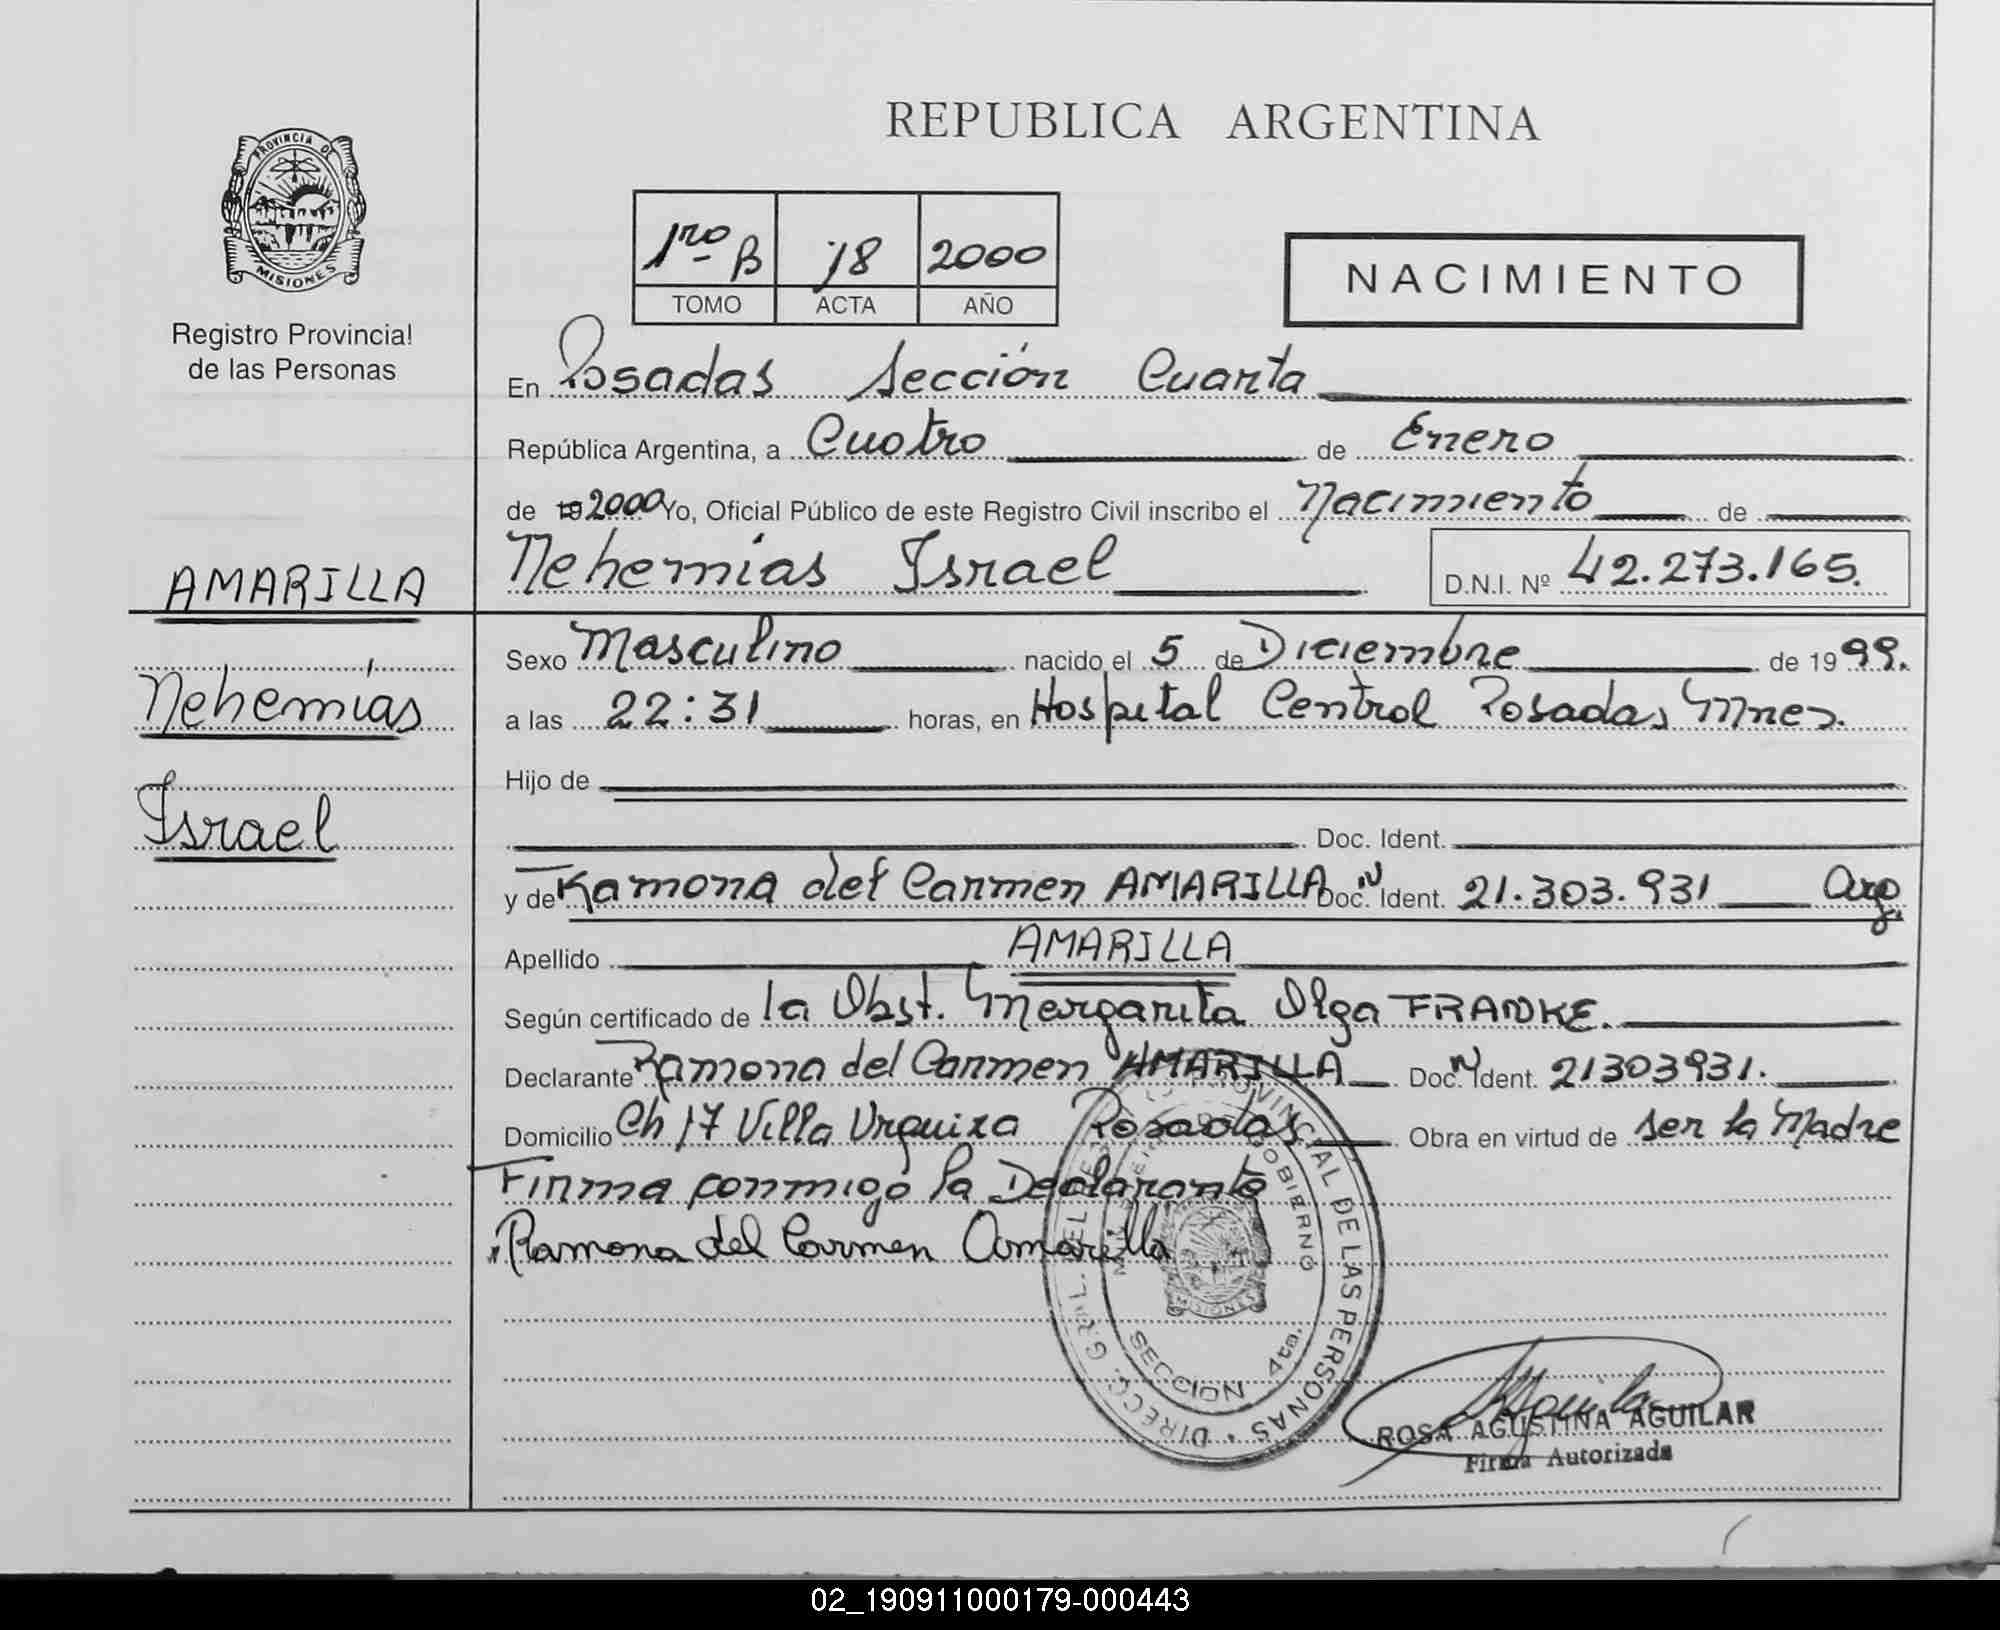 REPUBLICA ARGENTINA
PROVINCIA DE
MISIONES
Registro Provincial
de las Personas
1ro B 18 2000
TOMO ACTA AÑO
NACIMIENTO
En Posadas Sección Cuarta
República Argentina, a Cuatro de Enero
de 19 2000 Yo, Oficial Público de este Registro Civil inscribo el Nacimiento de
Nehemías Israel D.N.I. Nº 42.273.165.
AMARILLA
Nehemías
Israel
Sexo Masculino nacido el 5 de Diciembre de 1999.
a las 22:31 horas, en Hospital Central Posadas Mnes.
Hijo de
Doc. Ident.
y de Ramona del Carmen AMARILLA Doc. N Ident. 21.303.931 Arg.
Apellido AMARILLA
Según certificado de la Obst. Mergarita Olga FRANKE.
Declarante Ramona del Carmen AMARILLA Doc. N Ident. 21303931.
Domicilio Ch 17 Villa Urquiza Posadas Obra en virtud de ser la Madre
Firma conmigo la Declarante
Ramona del Carmen Amarilla
PROVINCIAL DE LAS PERSONAS • DIRECC. GRL. DEL
GOBIERNO
MISIONES
SECCION 4ta.
ROSA AGUSTINA AGUILAR
Firma Autorizada
02_190911000179-000443